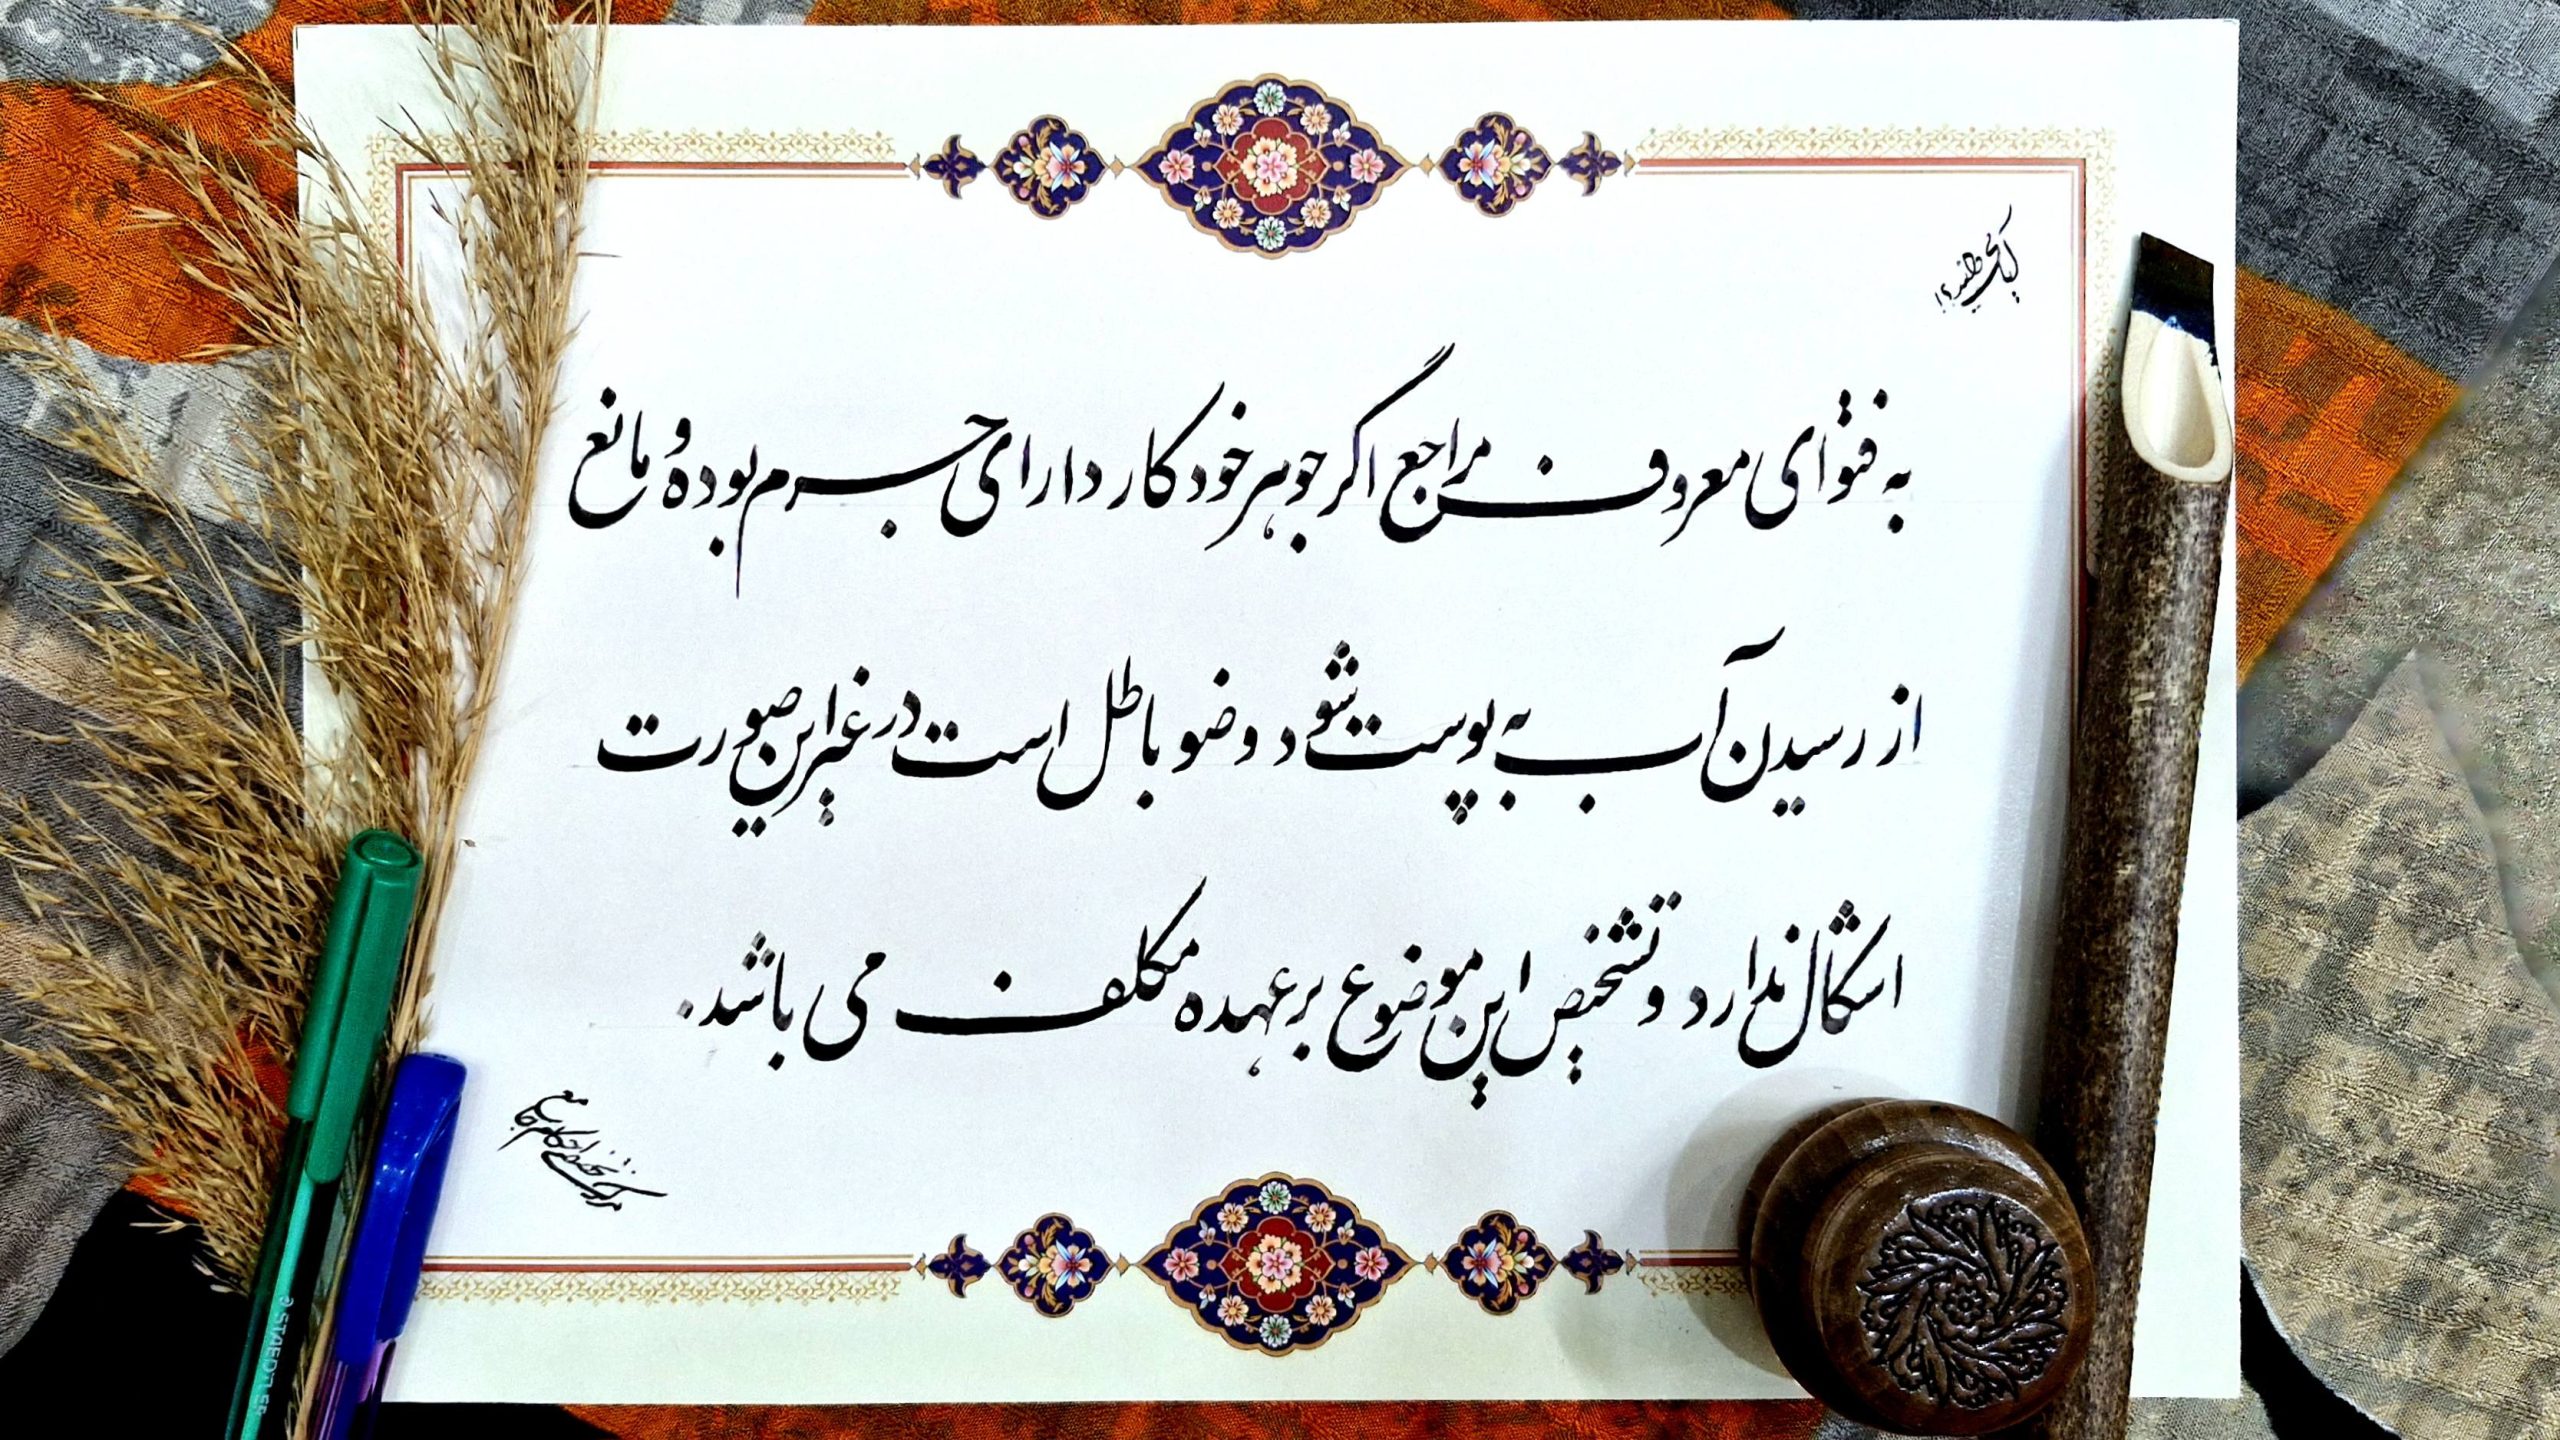 آیا می‌دانستید؟!
به فتوای معروف مراجع اگر جوهر خودکار دارای جرم بوده و مانع
از رسیدن آب به پوست شود وضو باطل است در غیر این صورت
اشکال ندارد و تشخیص این موضوع بر عهده مکلف می باشد.
مرکز تخصصی احکام جامع
STAEDTLER